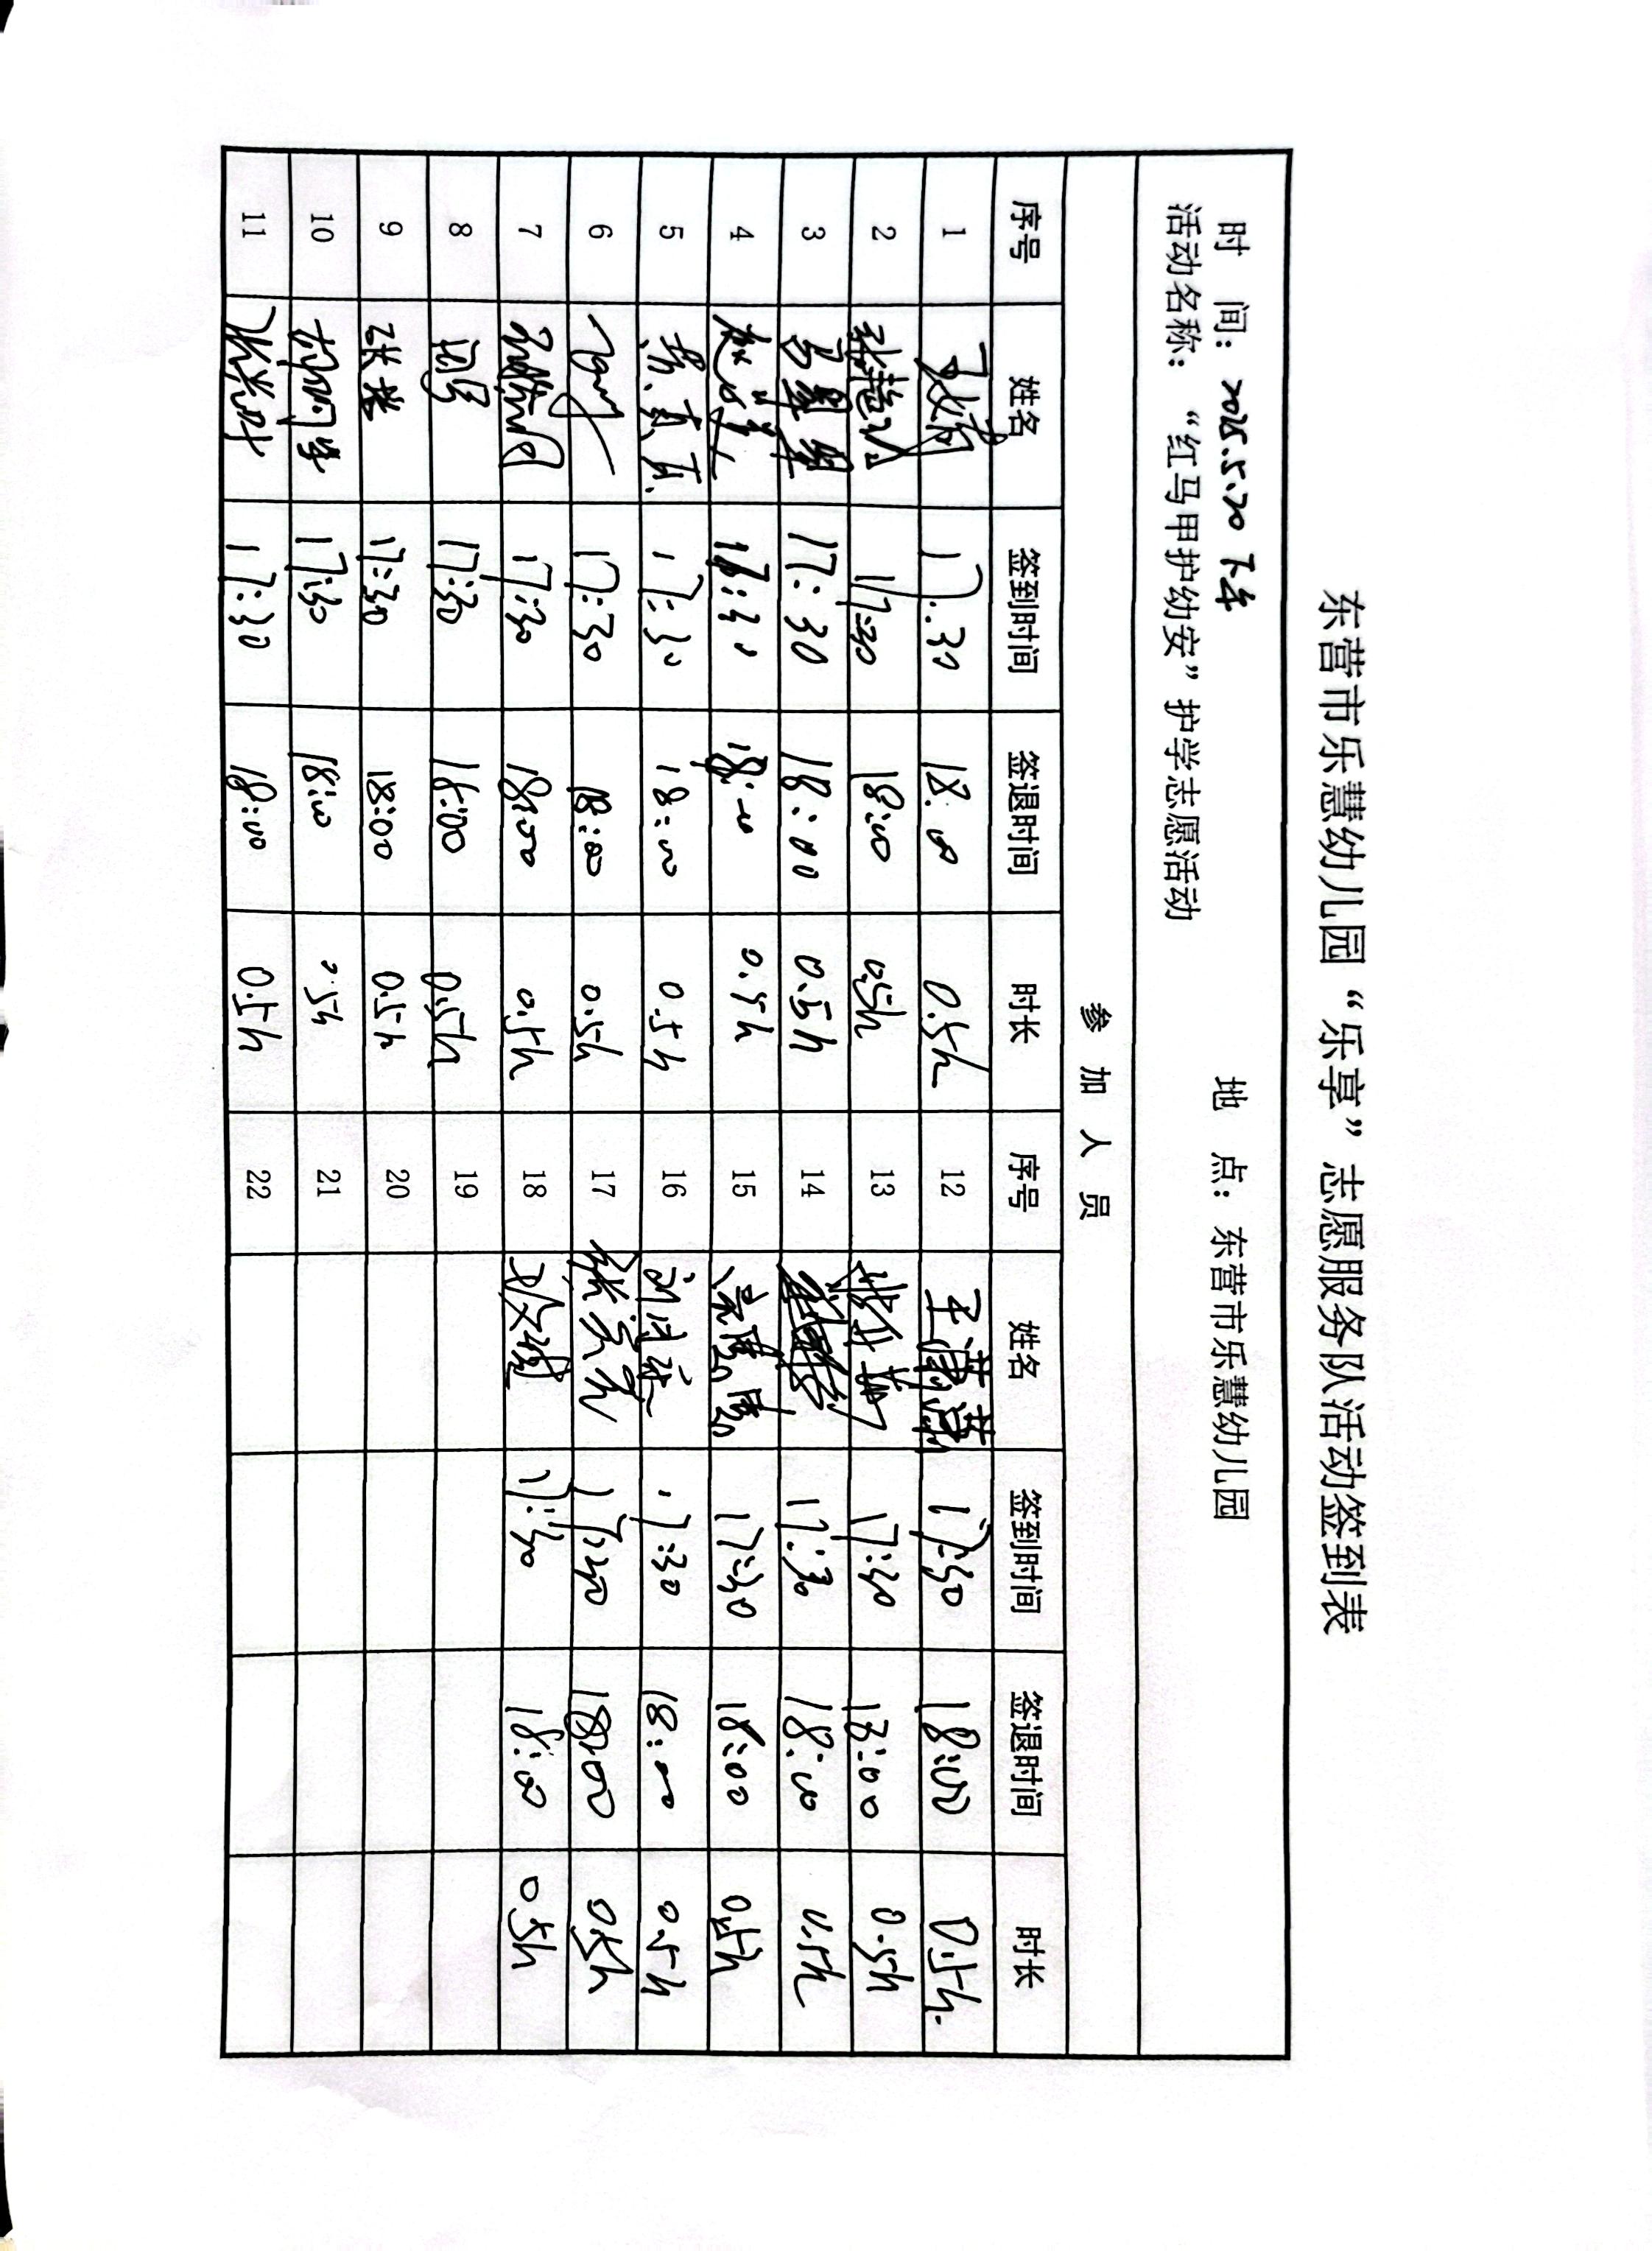 东营市乐慧幼儿园“乐享”志愿服务队活动签到表
时 间: 2025.5.20 下午 地 点: 东营市乐慧幼儿园
活动名称: “红马甲护幼安”护学志愿活动
参 加 人 员
序号 姓名 签到时间 签退时间 时长 序号 姓名 签到时间 签退时间 时长
1 17:30 18:00 0.5h 12 王潇潇 17:30 18:00 0.5h
2 17:30 18:00 0.5h 13 17:30 18:00 0.5h
3 17:30 18:00 0.5h 14 17:30 18:00 0.5h
4 17:30 18:00 0.5h 15 17:30 18:00 0.5h
5 17:30 18:00 0.5h 16 17:30 18:00 0.5h
6 17:30 18:00 0.5h 17 17:30 18:00 0.5h
7 17:30 18:00 0.5h 18 17:30 18:00 0.5h
8 17:30 18:00 0.5h 19
9 17:30 18:00 0.5h 20
10 17:30 18:00 0.5h 21
11 17:30 18:00 0.5h 22